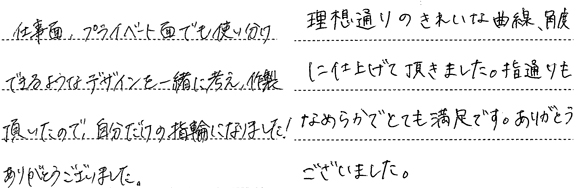 仕事面、プライベート面でも使い分け
できるようなデザインを一緒に考え、作製
頂いたので、自分だけの指輪になりました!
ありがとうございました。
理想通りのきれいな曲線、角度
に仕上げて頂きました。指通りも
なめらかでとても満足です。ありがとう
ございました。